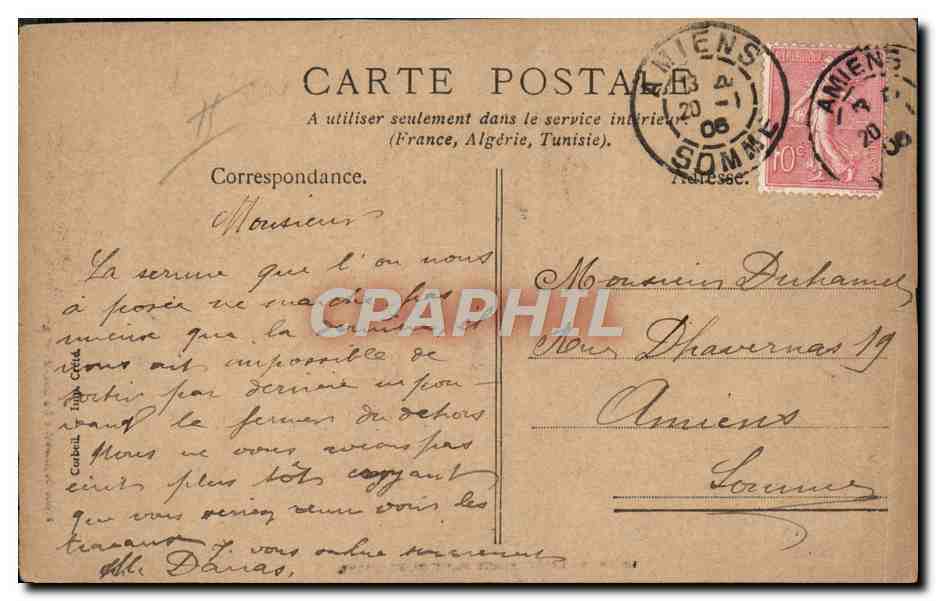 CARTE POSTALE
A utiliser seulement dans le service intérieur
(France, Algérie, Tunisie).
AMIENS
13
20 2-1
06
SOMME
AMIENS
20
06
10c
Correspondance.
Adresse.
Monsieur
La serrure que l'on nous
à posée ne marche pas
mieux que la dernière, il
nous est impossible de
sortir par derière en pou-
vant le fermer du dehors
Nous ne vous avions pas
écrit plus tôt croyant
que vous seriez venu voir les
travaux
Mlle Darras.
Monsieur Duhamel
Rue Dhavernas 19
Amiens
Somme
Corbeil. Imp. Crété.
CPAPHIL